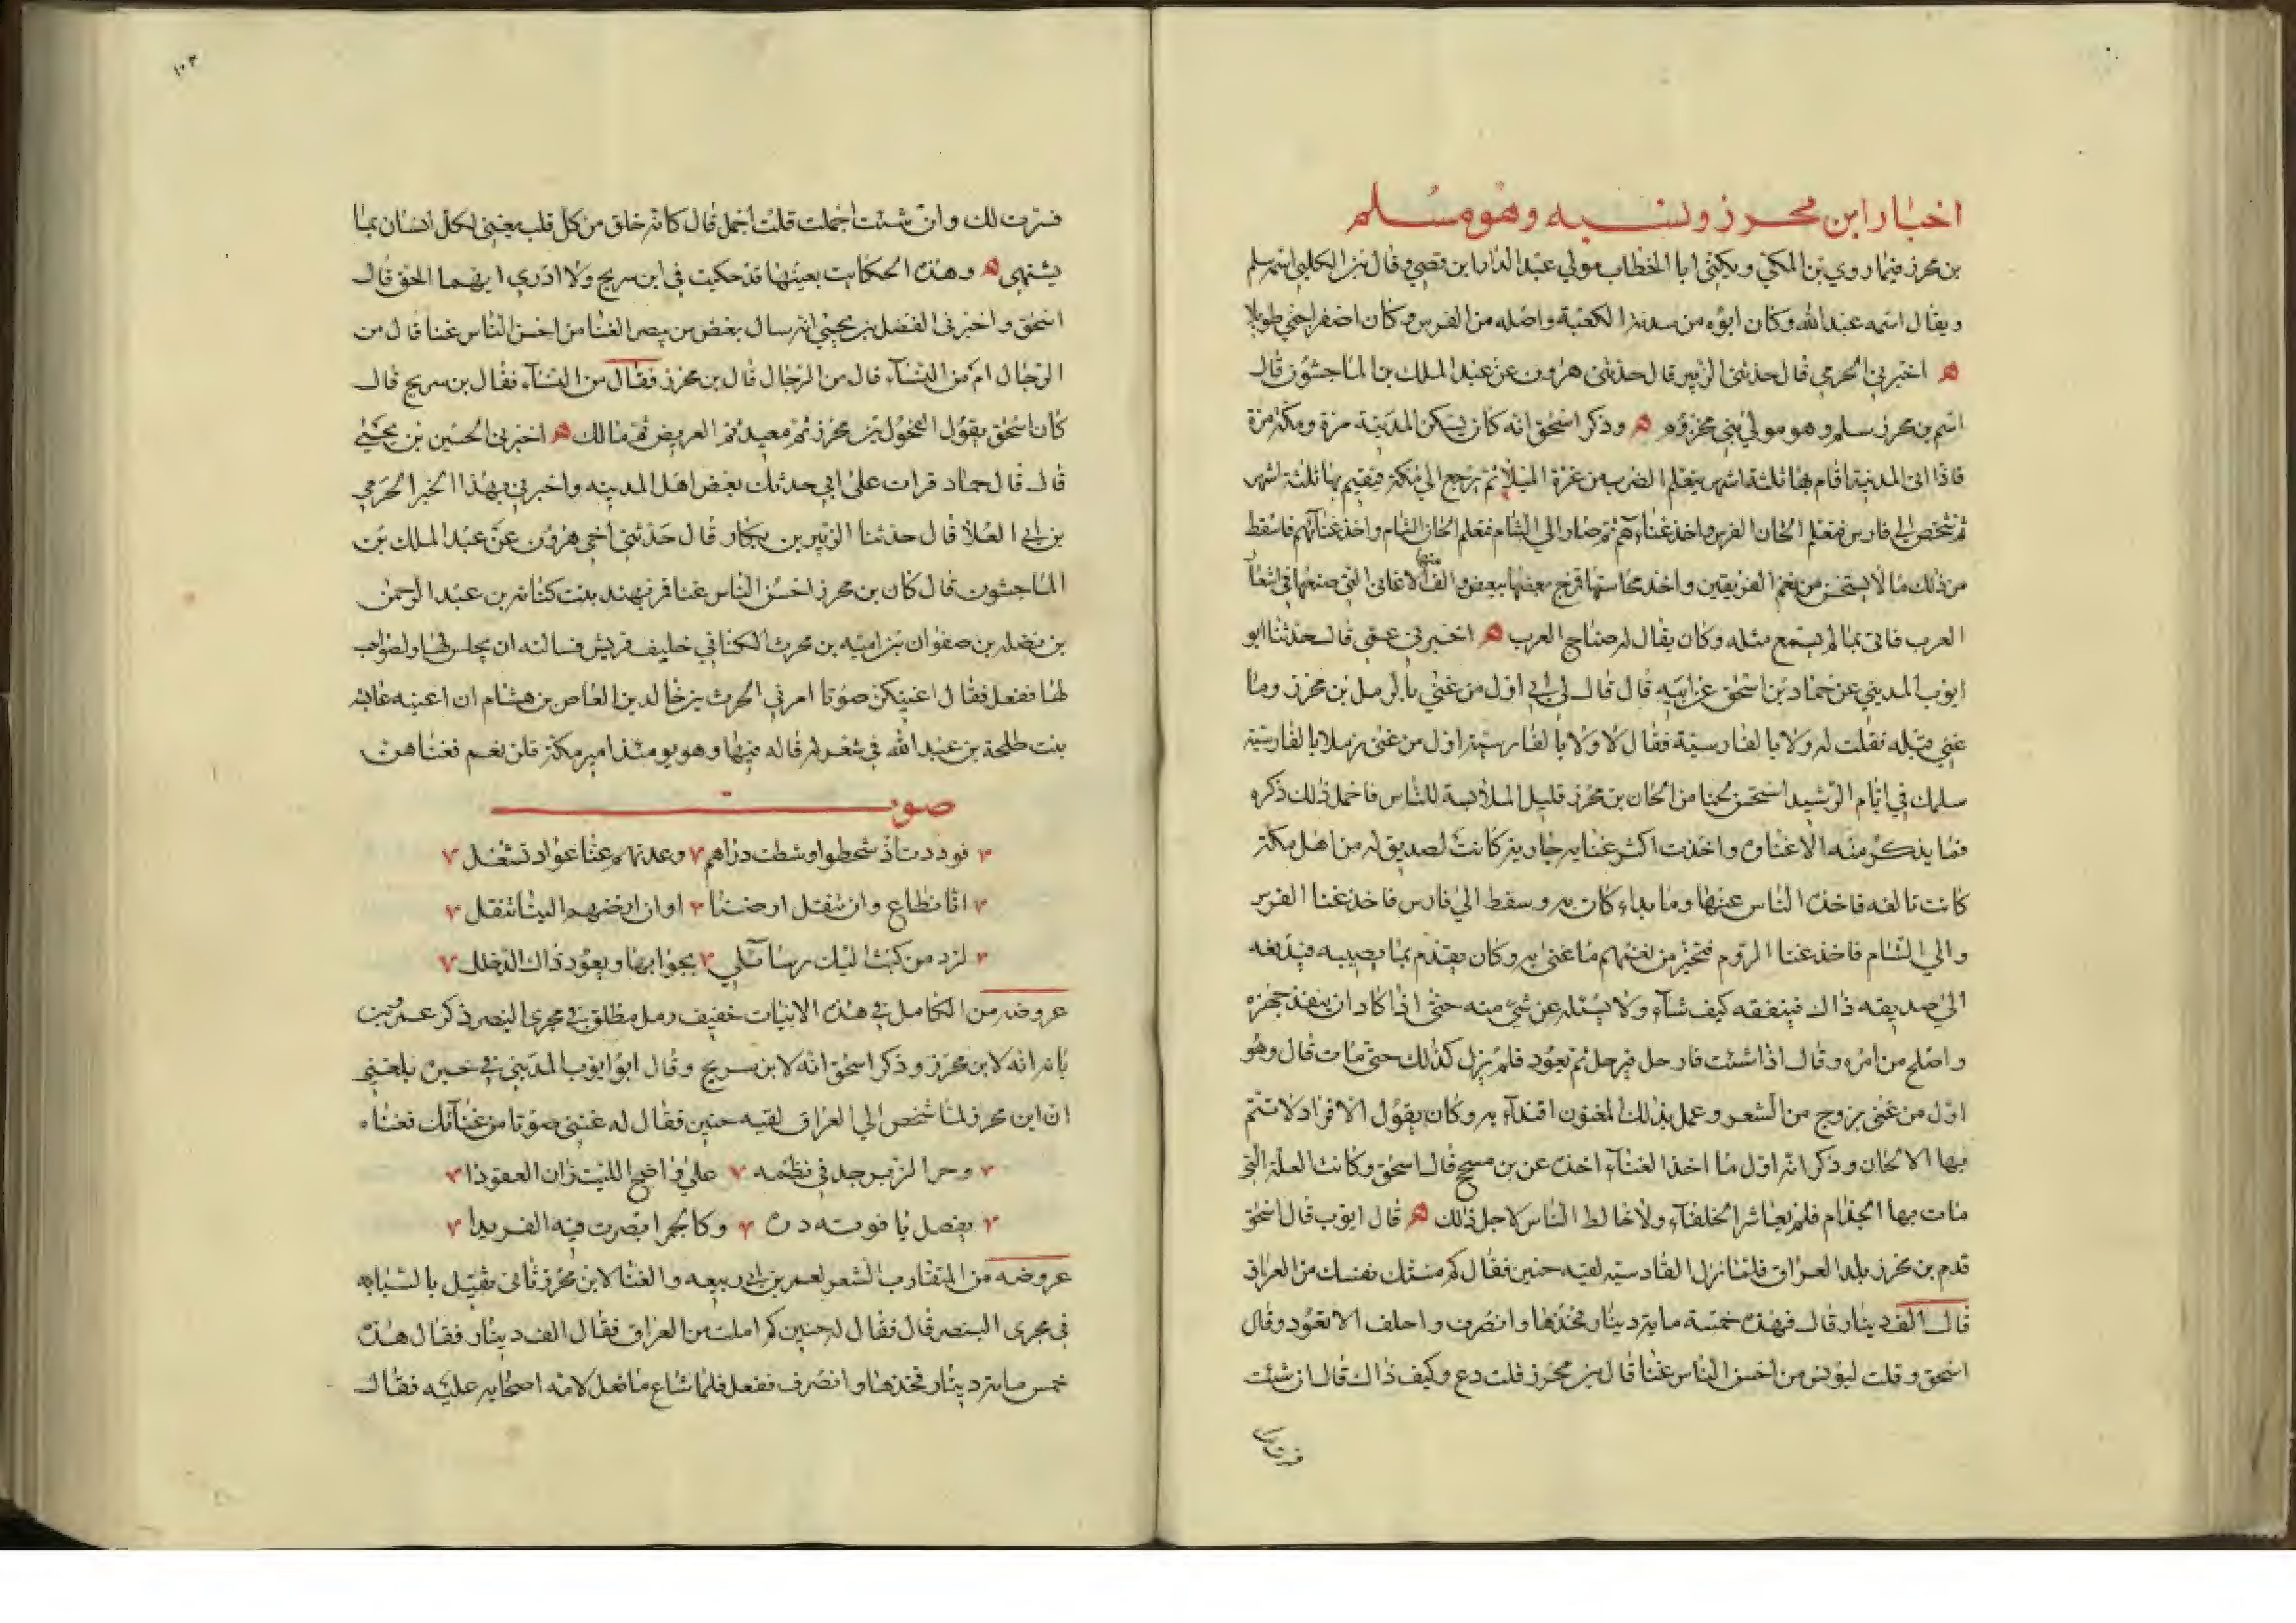 اخبار ابن محرز ونسبه وهو مسلم
بن محرز فيما روي بن المكي ويكنى ابا الخطاب مولي عبد الدار ابن قصي وقال بن الكلبي اسمه سلم
ويقال اسمه عبد الله وكان ابوه من سدنة الكعبة واصله من الفرس وكان اصفر اجني طويلا
ه اخبرني الحرمي قال حدثني الزبير قال حدثني هرون عن عبد الملك بن الماجشون قال
اسم بن محرز سلم وهو مولي بني مخزوم ه وذكر اسحق انه كان يسكن المدينة مرة ومكة مرة
فاذا اتى المدينة اقام بها ثلثة اشهر يتعلم الضرب من عزة الميلا ثم يرجع الي مكة فيقيم بها ثلثة اشهر
ثم شخص الي فارس فتعلم الحان الفرس واخذ غناءهم ثم صار الي الشام فتعلم الحان الشام واخذ غناءهم فاسقط
من ذلك ما لا يستحسن من نغم الفريقين واخذ محاسنها فمزج بعضها ببعض والف منها الاغاني التي صنعها في اشعار
العرب فاتى بما لم يسمع مثله وكان يقال له صناج العرب ه اخبرني عمي قال حدثنا ابو
ايوب المديني عن حماد بن اسحق عن ابيه قال قال لي ابي اول من غني بالرمل بن محرز وما
غني قبله فقلت له ولا بالفارسية فقال لا ولا بالفارسية اول من غنى رملا بالفارسية
سلمك في ايام الرشيد استحسن لحنا من الحان بن محرز قليل الملابسة للناس فاخمل ذلك ذكره
فما يذكر منه الا غناه واخذت اكثر غنايه جارية كانت لصديق له من اهل مكة
كانت تالفه فاخذه الناس عنها وما بداء كان به وسقط الي فارس فاخذ غنا الفرس
والي الشام فاخذ غنا الروم فتخير من نغمهم ما غنى به وكان يقدم بما يصيبه فيدفعه
الي صديقه ذاك فينفقه كيف شاء ولا يسئله عن شي منه حتى اذا كاد ان ينفذ جهزه
واصلح من امره وقال اذا شئت فارحل فيرحل ثم يعود فلم يزل كذلك حتى مات قال وهو
اول من غنى بزوج من الشعر وعمل بذلك المغنون اقتداء به وكان يقول الافراد لا تتم
بها الالحان وذكر انه اول ما اخذ الغناء اخذه عن بن مسجح قال اسحق وكانت العلة التي
مات بها الجذام فلم يعاشر الخلفاء ولا خالط الناس لاجل ذلك ه قال ايوب قال اسحق
قدم بن محرز بلد العراق فلما نزل القادسية لقيه حنين فقال كم منتك نفسك من العراق
قال الف دينار قال فهذه خمسة ماية دينار فخذها وانصرف واحلف الا تعود وقال
اسحق وقلت ليونس من احسن الناس غنا قال بن محرز قلت دع وكيف ذاك قال ان شئت
فسرت
١٠٣
فسرت لك وان شئت اجملت قلت اجمل قال كانه خلق من كل قلب يغني لكل انسان بما
يشتهي ه وهذه الحكايت بعينها قد حكيت في ابن سريج ولا ادري ايهما الحق قال
اسحق واخبرني الفضل بن يحيي انه سال بعض من يبصر الغنا من احسن الناس غنا قال من
الرجال ام من النساء قال من الرجال قال بن محرز فقال من النساء فقال بن سريج قال
كان اسحق يقول الفحول بن محرز ثم معبد ثم الغريض ثم مالك ه اخبرني الحسين بن يحيي
قال قال حماد قرات على ابي حدثك بعض اهل المدينه واخبرني بهذا الخبر الحرمي
بن ابي العلا قال حدثنا الزبير بن بكار قال حدثني اخي هرون عن عبد الملك بن
الماجشون قال كان بن محرز احسن الناس غنا فمر بهند بنت كنانه بن عبد الرحمن
بن نضله بن صفوان بن اميه بن محرث الكناني حليف قريش فسالته ان يجلس لها ولصواحب
لها ففعل فقال اغنيكن صوتا امرني الحرث بن خالد بن العاص بن هشام ان اغنيه عايشه
بنت طلحة بن عبد الله في شعر له قاله فيها وهو يومئذ امير مكة قلن نعم فغناهن
صوت
فوددت اذ شحطوا وشطت دراهم وعدتهم عنا عواد تشغل
انا نطاع وان تنقل ارضنا او ان ارضهم الينا تنقل
لنرد من كثب اليك رسايلي بجوابها ويعود ذاك الدخلل
عروضه من الكامل في هذه الابيات خفيف رمل مطلق في مجرى البنصر ذكر عمرو بن
بانه انه لابن محرز وذكر اسحق انه لابن سريج وقال ابو ايوب المديني في خبره بلغني
ان ابن محرز لما شخص الي العراق لقيه حنين فقال له غنني صوتا من غنائك فغناه
وحر الزبرجد في نظمه علي واضح الليت زان العقودا
يفصل ياقوته دره وكالجمر ابصرت فيه الفريدا
عروضه من المتقارب الشعر لعمر بن ابي ربيعه والغنا لابن محرز ثاني ثقيل بالسبابه
في مجرى البنصر قال فقال له حنين كم املت من العراق فقال الف دينار فقال هذه
خمس ماية دينار فخذها وانصرف ففعل فلما شاع ما فعل لامه اصحابه عليه فقال